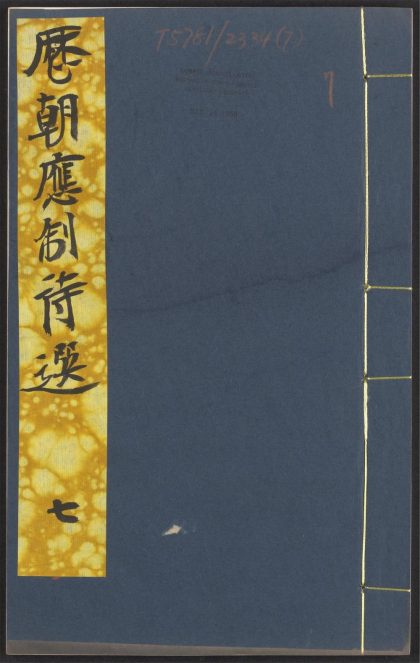 厯朝應制詩選
七
T5781/2334(7)
7